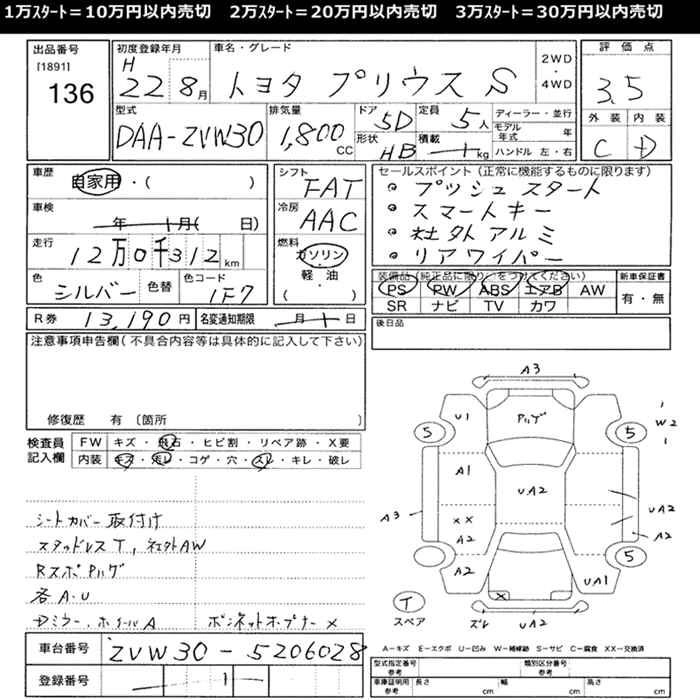 1万ｽﾀｰﾄ＝10万円以内売切　2万ｽﾀｰﾄ＝20万円以内売切　3万ｽﾀｰﾄ＝30万円以内売切
出品番号
[1891]
136
初度登録年月
H 22 8月
車名・グレード
トヨタ プリウス S
2WD・4WD
評価点
3.5
外装 内装
C D
型式
DAA-ZVW30
排気量
1,800 CC
ドア 5D
形状 HB
定員 5人
積載 kg
ディーラー・並行
モデル年式 年
ハンドル 左・右
車歴
自家用・( )
車検
年 月( 日)
走行
12万0千312 km
色
シルバー
色替
色コード
1F7
シフト
FAT
冷房
AAC
燃料
ガソリン
軽・油
( )
セールスポイント（正常に機能するものに限ります）
・プッシュスタート
・スマートキー
・社外アルミ
・リアワイパー
装備品（純正品に限り○をつけてください）
PS PW ABS エアB AW
SR ナビ TV カワ
新車保証書
有・無
R券 13,190円
名変通知期限 月 日
後日品
注意事項申告欄（不具合内容等は具体的に記入して下さい）
修復歴 有〔箇所 〕
検査員記入欄
FW キズ・飛石・ヒビ割・リペア跡・X要
内装 キズ・汚レ・コゲ・穴・スレ・キレ・破レ
シートカバー取付け
スタッドレスT, 社外AW
RスポPルゲ
各A・U
ドミラー、ホイールA
ボンネットオープナーX
車台番号
ZVW30-5206028
登録番号
A3
U1
Pルゲ
W2
5
5
A1
UA2
UA2
A3
XX
A2
A2
5
A2
X
UA1
T
スペア
ズレ
UA2
A－キズ E－エクボ U－凹み W－補修跡 S－サビ C－腐食 XX－交換済
型式指定番号
参考
類別区分番号
参考
車庫証明用
参考
長さ cm
幅 cm
高さ cm